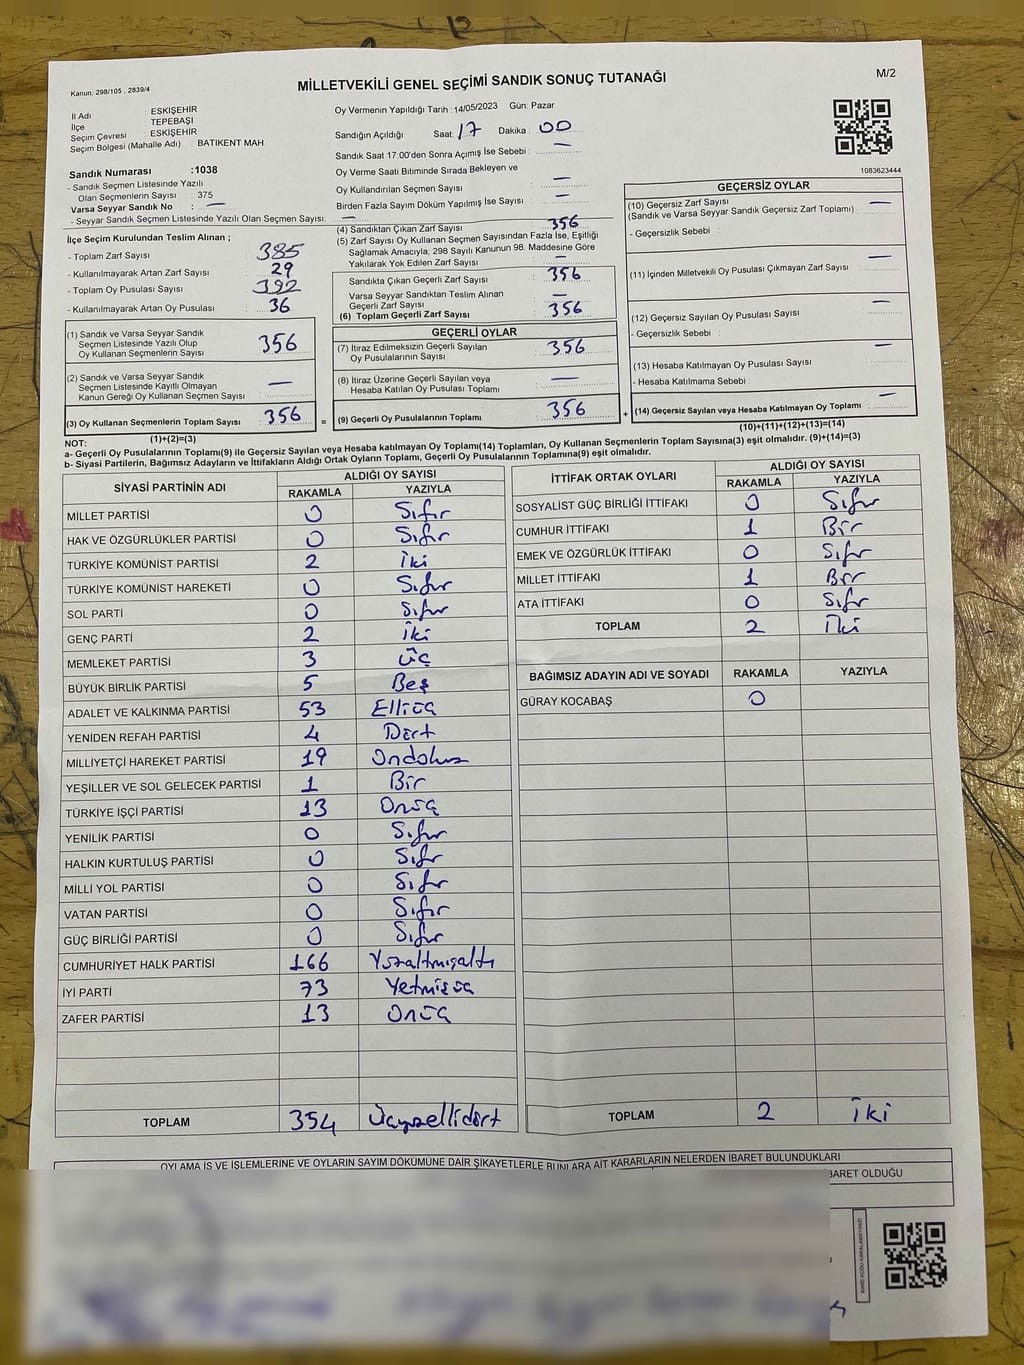 Kanun: 298/105 , 2839/4
MİLLETVEKİLİ GENEL SEÇİMİ SANDIK SONUÇ TUTANAĞI
M/2
İl Adı : ESKİŞEHİR
İlçe : TEPEBAŞI
Seçim Çevresi : ESKİŞEHİR
Seçim Bölgesi (Mahalle Adı) : BATIKENT MAH
Sandık Numarası :1038
- Sandık Seçmen Listesinde Yazılı
Olan Seçmenlerin Sayısı : 375
Varsa Seyyar Sandık No : —
- Seyyar Sandık Seçmen Listesinde Yazılı Olan Seçmen Sayısı: —
İlçe Seçim Kurulundan Teslim Alınan ;
- Toplam Zarf Sayısı 385
- Kullanılmayarak Artan Zarf Sayısı 29
- Toplam Oy Pusulası Sayısı 392
- Kullanılmayarak Artan Oy Pusulası 36
(1) Sandık ve Varsa Seyyar Sandık
Seçmen Listesinde Yazılı Olup
Oy Kullanan Seçmenlerin Sayısı 356
(2) Sandık ve Varsa Seyyar Sandık
Seçmen Listesinde Kayıtlı Olmayan
Kanun Gereği Oy Kullanan Seçmen Sayısı —
(3) Oy Kullanan Seçmenlerin Toplam Sayısı 356 =
(1)+(2)=(3)
Oy Vermenin Yapıldığı Tarih : 14/05/2023 Gün: Pazar
Sandığın Açıldığı Saat: 17 Dakika : 00
Sandık Saat 17:00'den Sonra Açımış İse Sebebi : —
Oy Verme Saati Bitiminde Sırada Bekleyen ve
Oy Kullandırılan Seçmen Sayısı : —
Birden Fazla Sayım Döküm Yapılmış İse Sayısı : —
(4) Sandıktan Çıkan Zarf Sayısı 356
(5) Zarf Sayısı Oy Kullanan Seçmen Sayısından Fazla İse, Eşitliği
Sağlamak Amacıyla, 298 Sayılı Kanunun 98. Maddesine Göre
Yakılarak Yok Edilen Zarf Sayısı —
Sandıkta Çıkan Geçerli Zarf Sayısı 356
Varsa Seyyar Sandıktan Teslim Alınan
Geçerli Zarf Sayısı —
(6) Toplam Geçerli Zarf Sayısı 356
GEÇERLİ OYLAR
(7) İtiraz Edilmeksizin Geçerli Sayılan
Oy Pusulasının Sayısı 356
(8) İtiraz Üzerine Geçerli Sayılan veya
Hesaba Katılan Oy Pusulası Toplamı —
(9) Geçerli Oy Pusulalarının Toplamı 356 +
1083623444
GEÇERSİZ OYLAR
(10) Geçersiz Zarf Sayısı —
(Sandık ve Varsa Seyyar Sandık Geçersiz Zarf Toplamı)
- Geçersizlik Sebebi :
(11) İçinden Milletvekili Oy Pusulası Çıkmayan Zarf Sayısı —
(12) Geçersiz Sayılan Oy Pusulası Sayısı —
- Geçersizlik Sebebi :
(13) Hesaba Katılmayan Oy Pusulası Sayısı —
- Hesaba Katılmama Sebebi :
(14) Geçersiz Sayılan veya Hesaba Katılmayan Oy Toplamı —
(10)+(11)+(12)+(13)=(14)
NOT:
a- Geçerli Oy Pusulalarının Toplamı(9) ile Geçersiz Sayılan veya Hesaba katılmayan Oy Toplamı(14) Toplamları, Oy Kullanan Seçmenlerin Toplam Sayısına(3) eşit olmalıdır. (9)+(14)=(3)
b- Siyasi Partilerin, Bağımsız Adayların ve İttifakların Aldığı Ortak Oyların Toplamı, Geçerli Oy Pusulalarının Toplamına(9) eşit olmalıdır.
SİYASİ PARTİNİN ADI ALDIĞI OY SAYISI
RAKAMLA YAZIYLA
MİLLET PARTİSİ 0 Sıfır
HAK VE ÖZGÜRLÜKLER PARTİSİ 0 Sıfır
TÜRKİYE KOMÜNİST PARTİSİ 2 İki
TÜRKİYE KOMÜNİST HAREKETİ 0 Sıfır
SOL PARTİ 0 Sıfır
GENÇ PARTİ 2 İki
MEMLEKET PARTİSİ 3 Üç
BÜYÜK BİRLİK PARTİSİ 5 Beş
ADALET VE KALKINMA PARTİSİ 53 Elliüç
YENİDEN REFAH PARTİSİ 4 Dört
MİLLİYETÇİ HAREKET PARTİSİ 19 Ondokuz
YEŞİLLER VE SOL GELECEK PARTİSİ 1 Bir
TÜRKİYE İŞÇİ PARTİSİ 13 Onüç
YENİLİK PARTİSİ 0 Sıfır
HALKIN KURTULUŞ PARTİSİ 0 Sıfır
MİLLİ YOL PARTİSİ 0 Sıfır
VATAN PARTİSİ 0 Sıfır
GÜÇ BİRLİĞİ PARTİSİ 0 Sıfır
CUMHURİYET HALK PARTİSİ 166 Yüzaltmışaltı
İYİ PARTİ 73 Yetmişüç
ZAFER PARTİSİ 13 Onüç
TOPLAM 354 Üçyüzellidört
İTTİFAK ORTAK OYLARI ALDIĞI OY SAYISI
RAKAMLA YAZIYLA
SOSYALİST GÜÇ BİRLİĞİ İTTİFAKI 0 Sıfır
CUMHUR İTTİFAKI 1 Bir
EMEK VE ÖZGÜRLÜK İTTİFAKI 0 Sıfır
MİLLET İTTİFAKI 1 Bir
ATA İTTİFAKI 0 Sıfır
TOPLAM 2 İki
BAĞIMSIZ ADAYIN ADI VE SOYADI RAKAMLA YAZIYLA
GÜRAY KOCABAŞ 0
TOPLAM 2 İki
OYLAMA İŞ VE İŞLEMLERİNE VE OYLARIN SAYIM DÖKÜMÜNE DAİR ŞİKAYETLERLE BUNLARA AİT KARARLARIN NELERDEN İBARET BULUNDUKLARI
BARET OLDUĞU